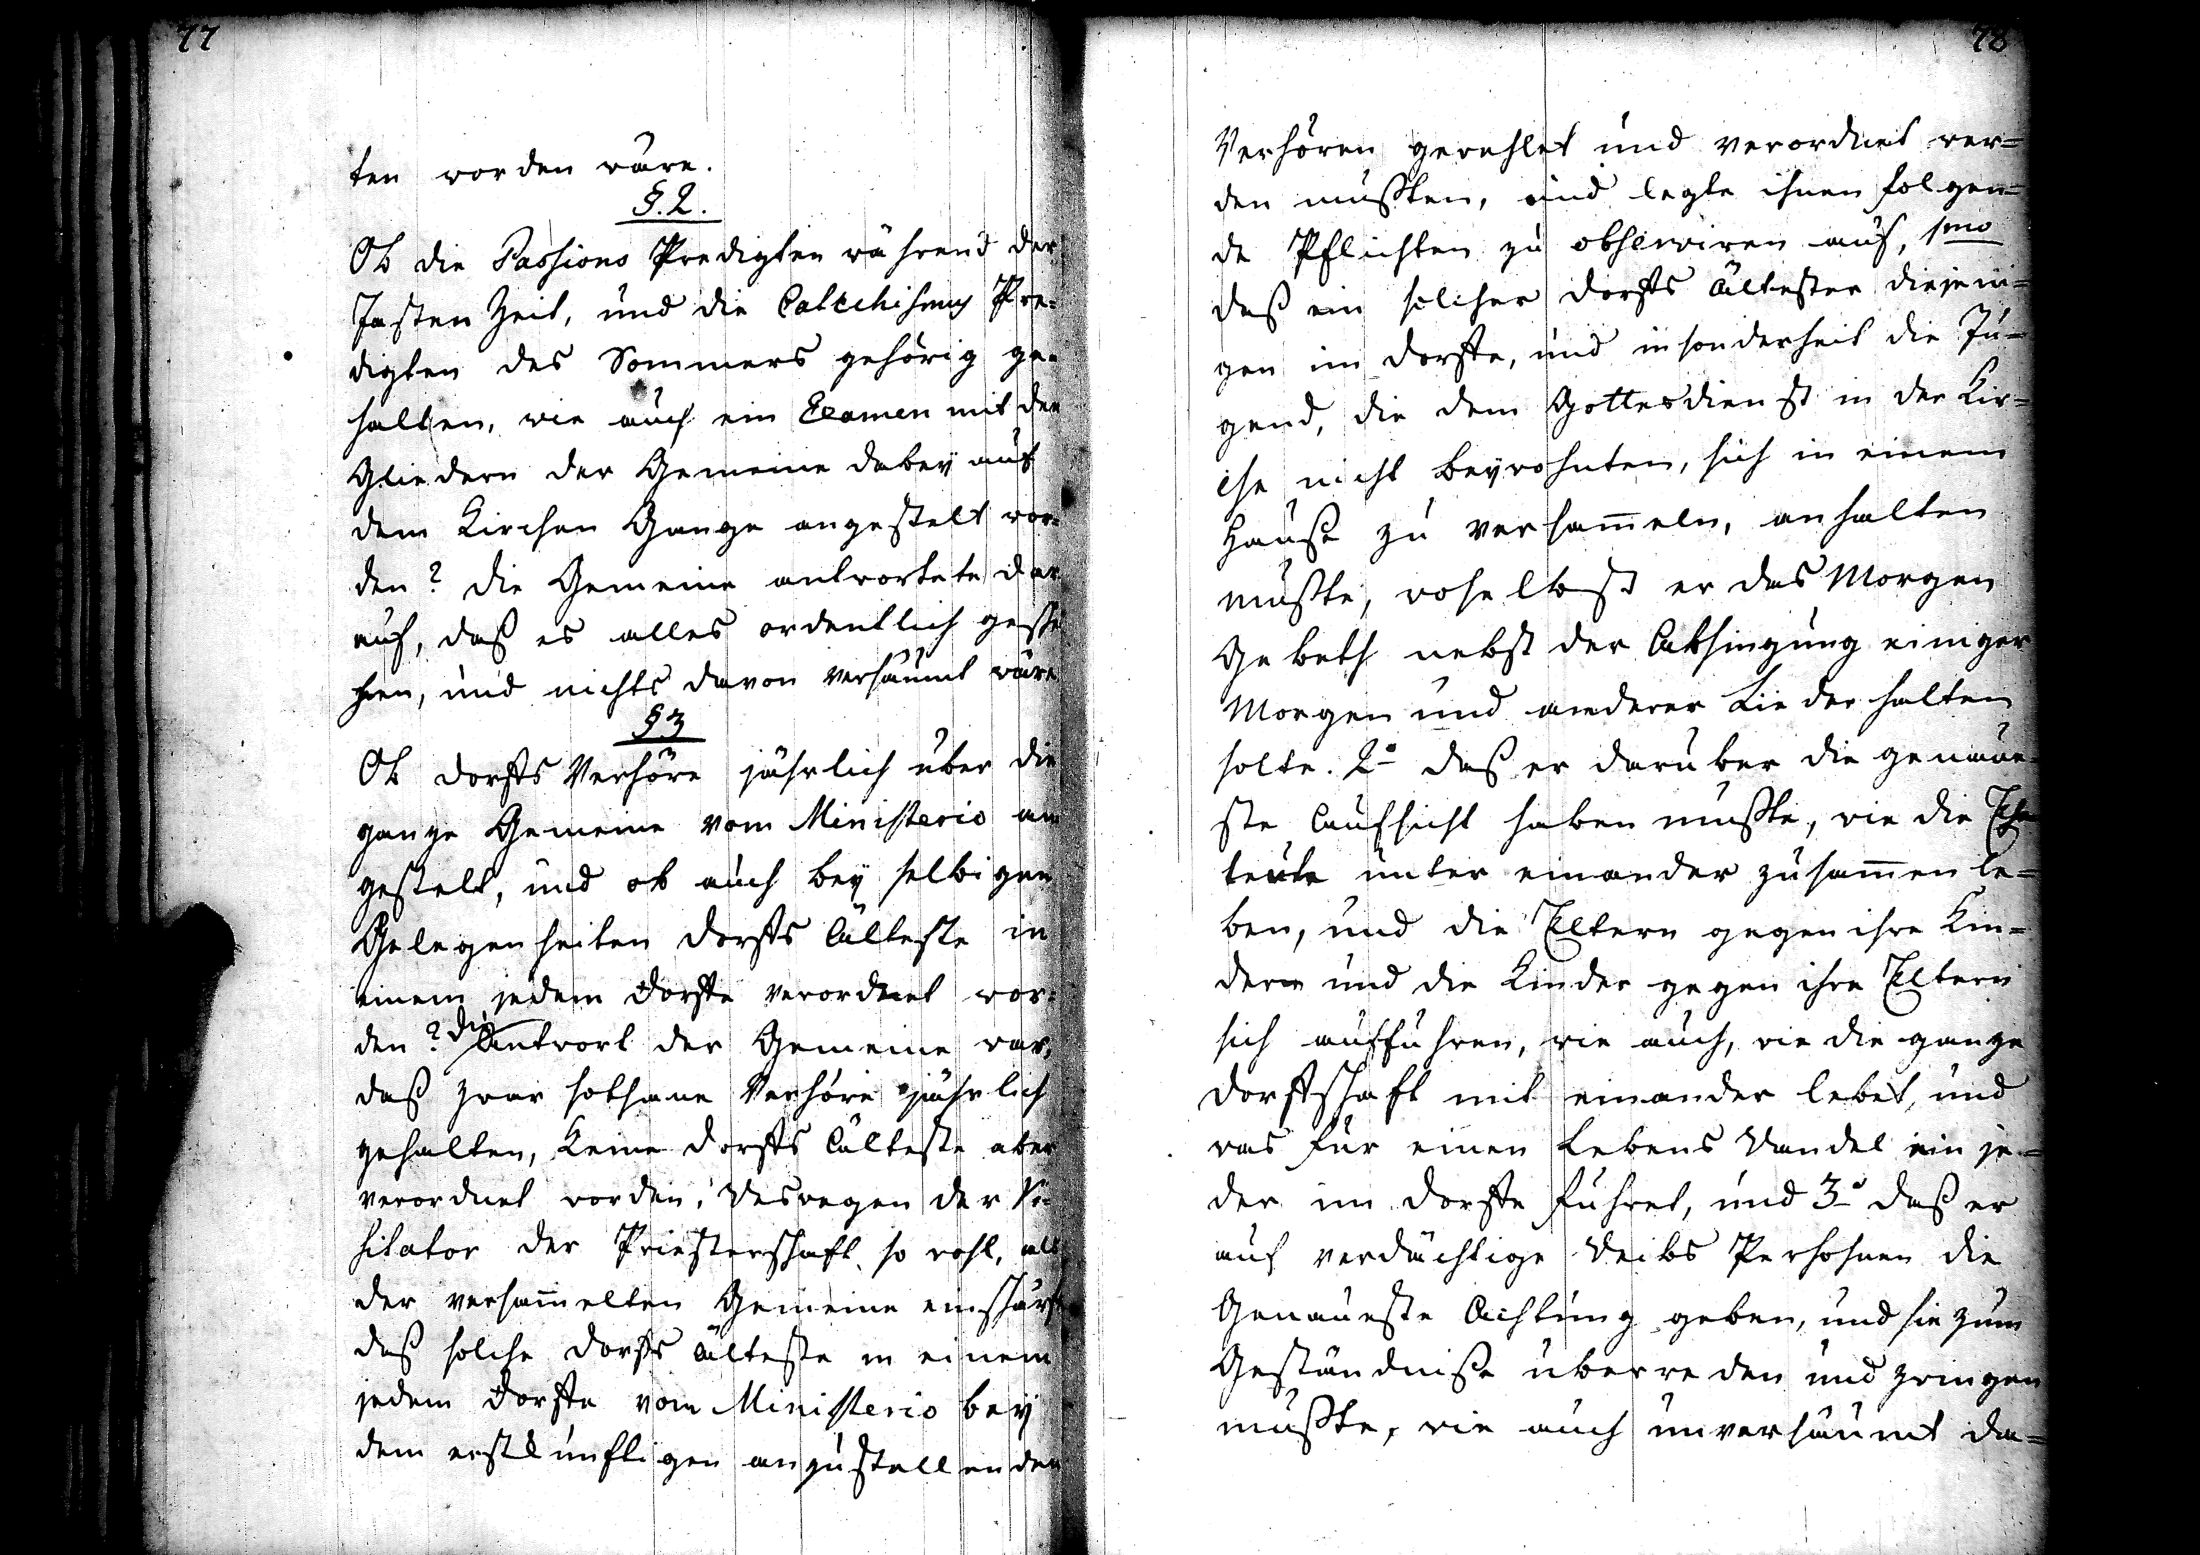 77
ten worden wäre.
§. 2.
Ob die Passions Predigten während der
Fasten Zeit, und die Catechismus Pre=
digten des Sommers gehörig ge=
halten, wie auch ein Examen mit den
Gliedern der Gemeine dabey auf
dem Kirchen Gange angestelt wor=
den? die Gemeine antwortete dar
auf, daß es alles ordentlich gesche
hen, und nichts davon versäumt wäre
§ 3
Ob dorffs Verhöre jährlich über die
gantze Gemeine vom Ministerio an
gestelt, und ob auch bey selbigen
Gelegenheiten dorffs Älteste in
einem jedem dorffe verordnet wor=
den? die Antwort der Gemeine war,
daß zwar sothane Verhöre jährlich
gehalten, keine dorffs Älteste aber
verordnet worden. Deswegen der Vi=
sitator der Priesterschaft so wohl, als
der versam̄elten Gemeine einschärft
daß solche dorffs Älteste in einem
jedem dorffe vom Ministerio bey
dem erstkünfftigen anzustellenden
78
Verhören gewehlet und verordnet wer=
den müsten, und legte ihnen folgen=
de Pflichten zu observiren auf, 1mo
daß ein solcher dorffs Ältester diejeni=
gen im dorffe, und insonderheit die Ju=
gend, die dem Gottesdienst in der Kir=
che nicht beywohnten, sich in einem
Hauße zu versam̄eln, anhalten
müßte, woselbst er das Morgen
Gebeth nebst der Absingung einiger
Morgen und anderer Lieder halten
solte. 2o daß er darüber die genaue=
ste Aufsicht haben müßte, wie die Ehe
leute unter einander zusam̄en le=
ben, und die Eltern gegen ihre Kin=
dern und die Kinder gegen ihre Eltern
sich aufführen, wie auch, wie die gantze
dorffschaft mit einander lebet, und
was für einen Lebens Wandel ein je=
der im dorffe führet, und 3o daß er
auf verdächtige Weibs Persohnen die
Genaueste Achtung geben, und sie zum
Geständniße überreden und zwingen
müßte, wie auch unversäumt da=